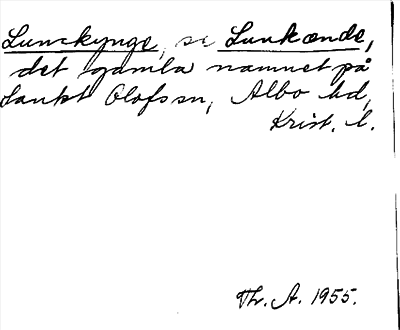 Lunckynge, se Lunkende,
det gamla namnet på
Sankt Olofs sn, Albo hd,
Krist. l.
Th. A. 1955.